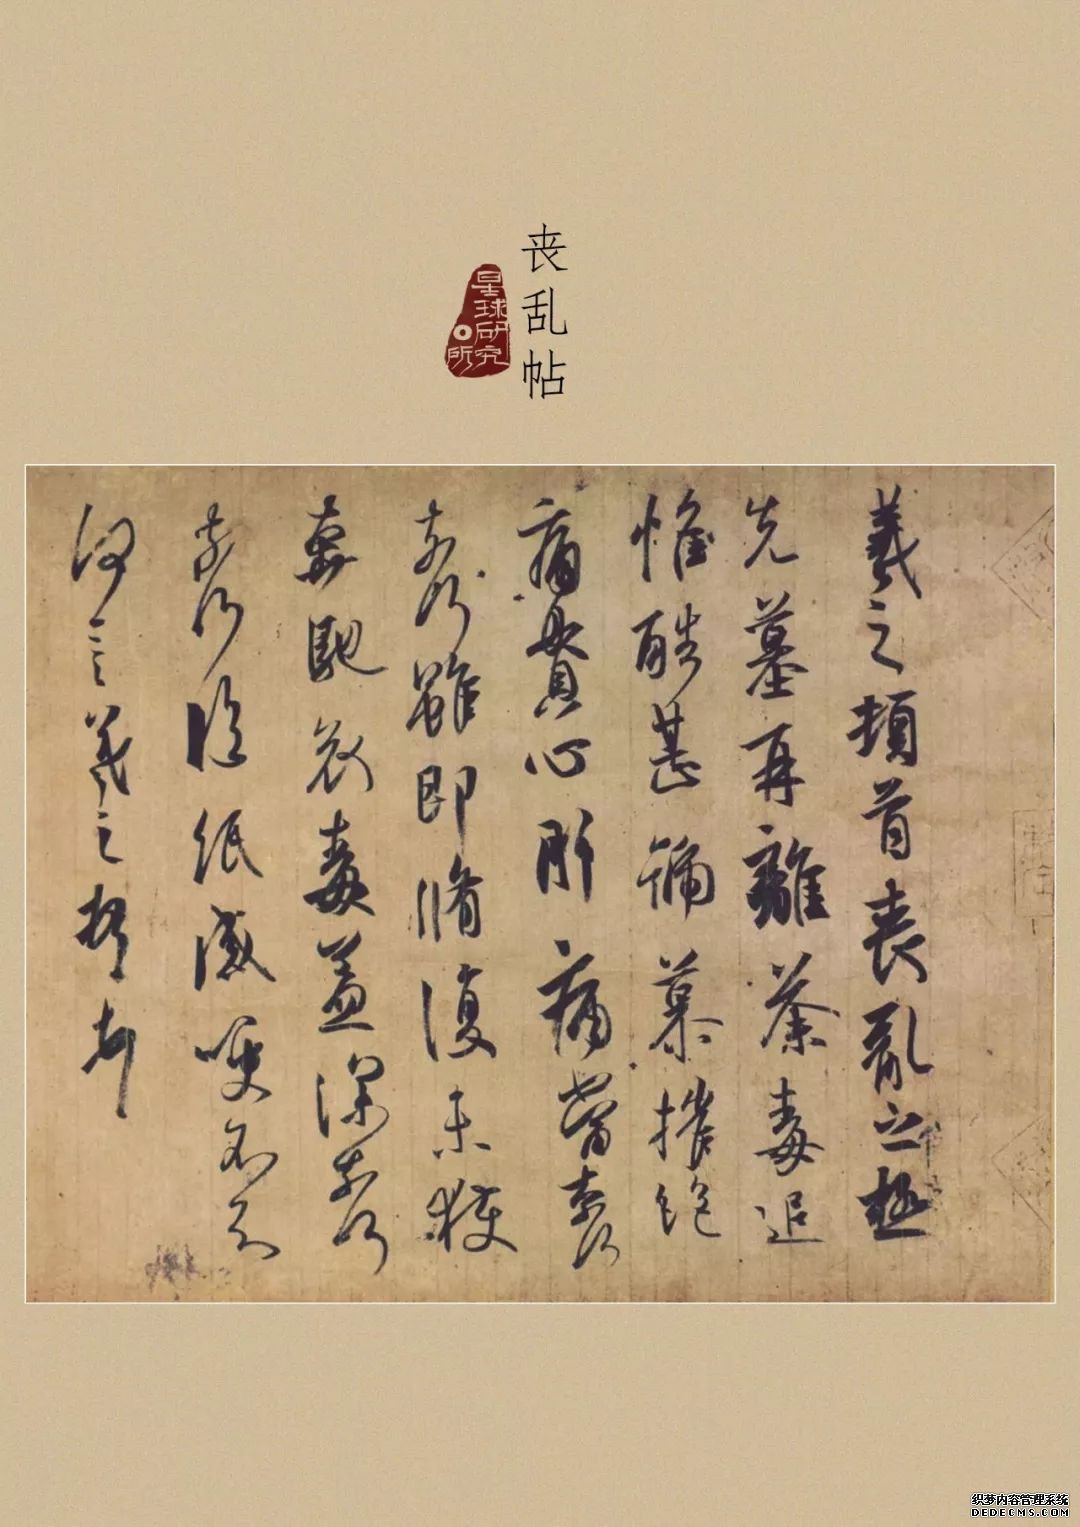 丧乱帖
星球研究所
羲之頓首喪亂之極
先墓再離荼毒追
惟酷甚號慕摧絶
痛貫心肝痛當柰何
柰何雖即脩復未獲
奔馳哀毒益深柰何
柰何臨紙感哽不知
何言羲之頓首頓首
织梦内容管理系统
DEDECMS.COM